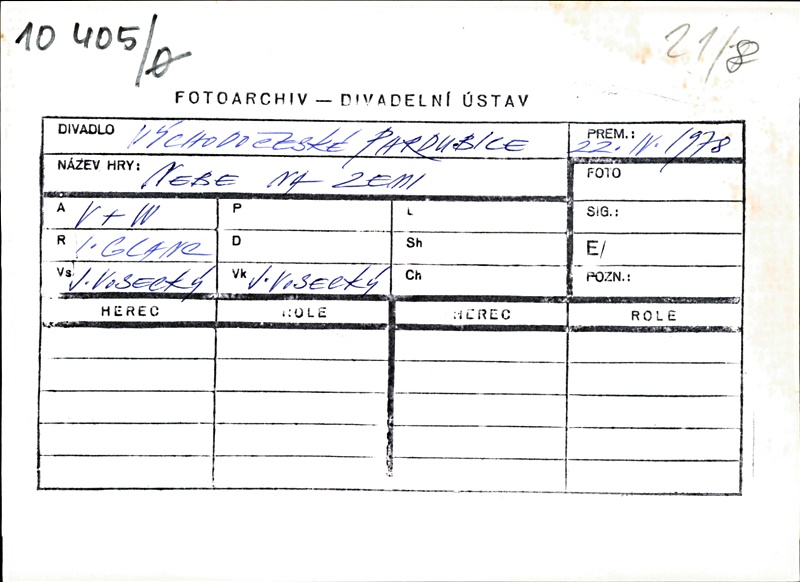 10 405/0
21/8
FOTOARCHIV — DIVADELNÍ ÚSTAV
DIVADLO VÝCHODOČESKÉ PARDUBICE PREM.: 22. IV. 1978
NÁZEV HRY: NEBE NA ZEMI FOTO
A V + W P L SIG.:
R I. GLANC D Sh E/
Vs J. VOSECKÝ Vk J. VOSECKÝ Ch POZN.:
HEREC ROLE HEREC ROLE